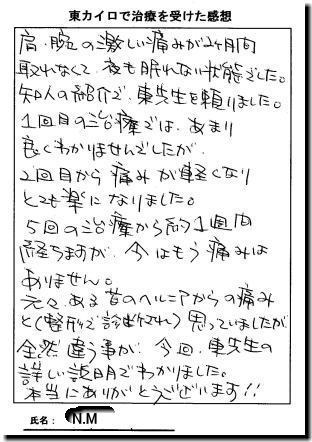 東カイロで治療を受けた感想
肩、腕の激しい痛みが2ヶ月間
取れなくて、夜も眠れない状態でした。
知人の紹介で、東先生を頼りました。
1回目の治療では、あまり
良くわかりませんでしたが、
2回目から痛みが軽くなり
とても楽になりました。
5回の治療から約1週間
経ちますが、今はもう痛みは
ありません。
元々、ある首のヘルニアからの痛み
と(整形で診断され)思っていましたが
全然違う事が、今回、東先生の
詳しい説明でわかりました。
本当にありがとうございます!!
氏名: N.M